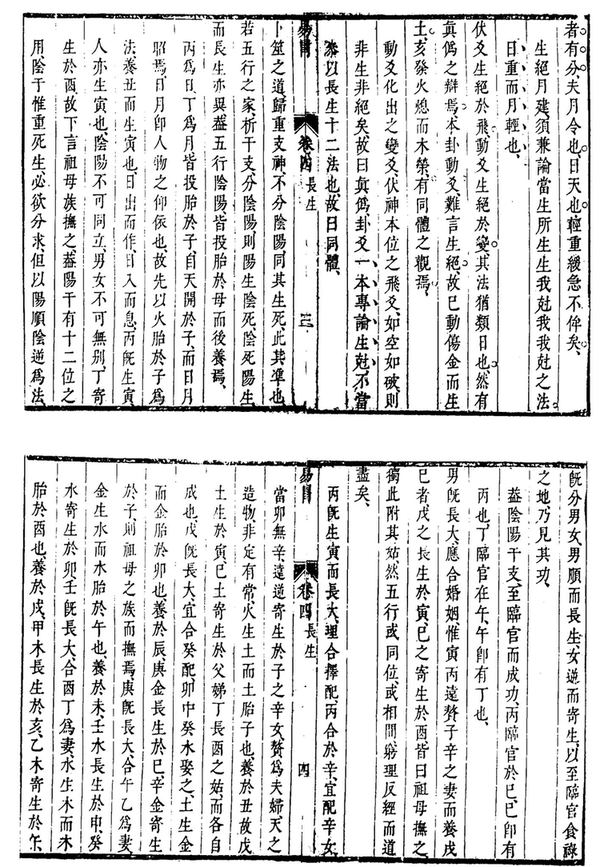 者有分夫月令也日天也輕重緩急不侔矣
生絕月建須兼論當生所生生我尅我我尅之法
日重而月輕也
伏爻生絕於飛動爻生絕於變其法猶類日也然有
真偽之辯焉本卦動爻難言生絕故已動傷金而生
土亥發火熄而木榮有同體之觀焉
動爻化出之變爻伏神本位之飛爻如空如破則
非生非絕矣故曰真偽卦爻一本專論生尅不當
泰以長生十二法也故曰同體
易冒 卷四 長生 三
卜筮之道歸重支神不分陰陽同其生死此其準也
若五行之家析干支分陰陽則陽生陰死陰死陽生
而長生亦異葢五行陰陽皆投胎於母而後養焉
丙為日丁為月皆投胎於子自天開於子而日月
昭焉日月卽人物之仰依也故先以火胎於子為
法養丑而生寅也日出而作日入而息丙旣生寅
人亦生寅也陰陽不可同立男女不可無別丁寄
生於酉故下言祖母族撫之葢陽干有十二位之
用陰干惟重死生必欲分求但以陽順陰逆為法
旣分男女男順而長生女逆而寄生以至臨官食祿
之地乃見其功
葢陰陽干支至臨官而成功丙臨官於巳巳卽有
丙也丁臨官在午午卽有丁也
男旣長大應合婚姻惟寅丙遠贅子辛之妻而養戊
巳者戊之長生於寅巳之寄生於酉皆曰祖母撫之
獨此附其姑然五行或同位或相間窮理反經而道
盡矣
丙旣生寅而長大理合擇配丙合於辛宜配辛女
易冒 卷四 長生 四
當卯無辛遠道寄生於子之辛女贅為夫婦天之
造物非定有常火生土而土胎子也養於丑故戊
土生於寅巳土寄生於父娣丁長酉之姑而各自
成也戊旣長大宜合癸配卯中癸水娶之土生金
而金胎於卯也養於辰庚金長生於巳辛金寄生
於子則祖母之族而撫焉庚旣長大合于乙為妻
金生水而水胎於午也養於未壬水長生於申癸
水寄生於卯壬旣長大合酉丁為妻水生木而木
胎於酉也養於戌甲木長生於亥乙木寄生於午